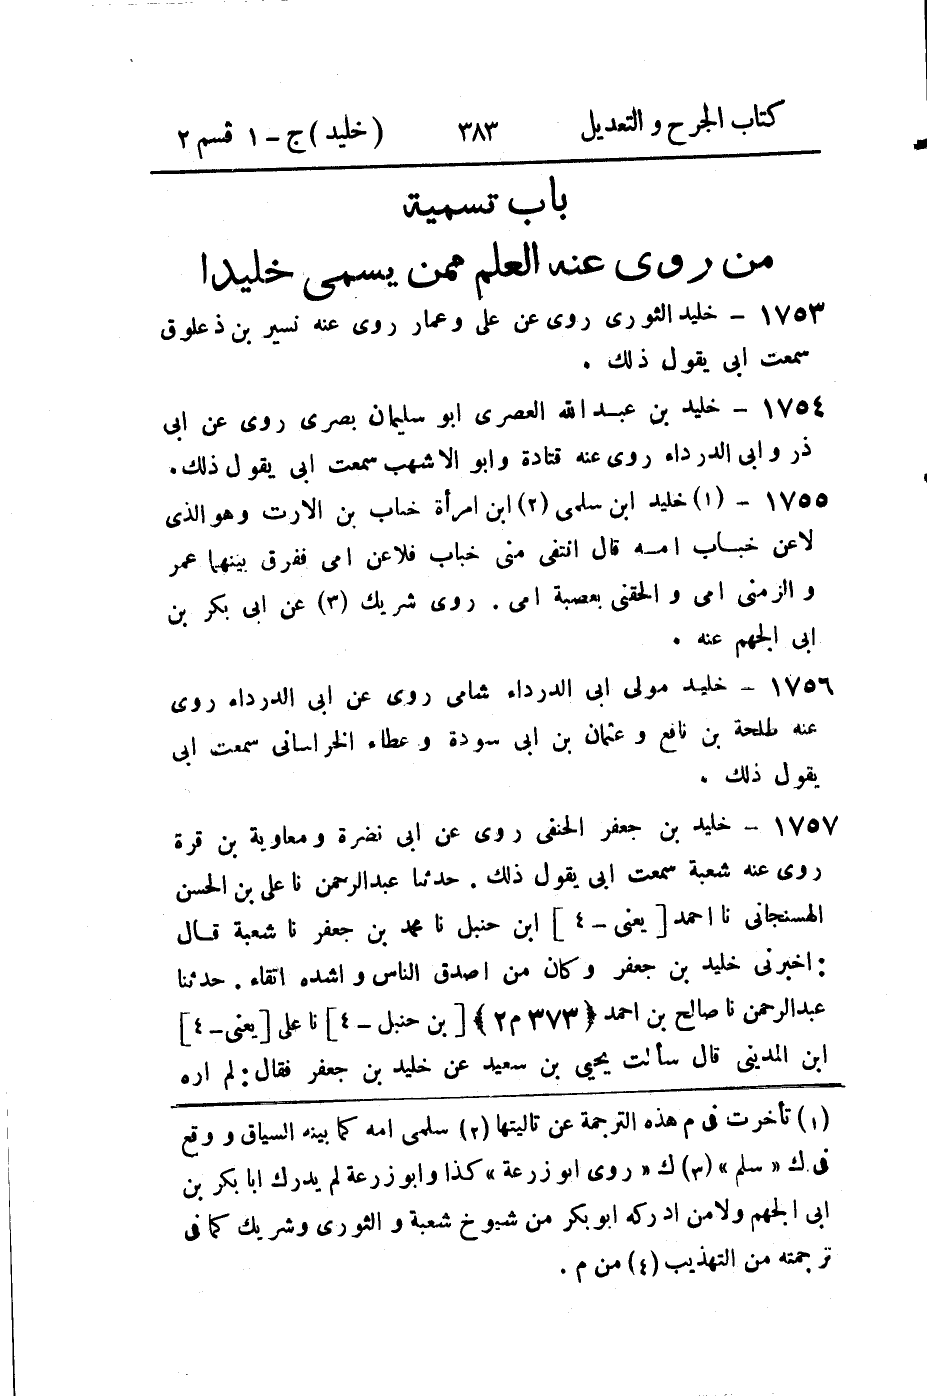 كتاب الجرح و التعديل ٣٨٣ (خليد) ج - ١ قسم ٢
باب تسمية
من روى عنه العلم ممن يسمى خليدا
١٧٥٣ - خليد الثورى روى عن على وعمار روى عنه نسير بن ذعلوق
سمعت ابى يقول ذلك .
١٧٥٤ - خليد بن عبد الله العصرى ابو سليمان بصرى روى عن ابى
ذر وابى الدرداء روى عنه قتادة وابو الاشهب سمعت ابى يقول ذلك.
١٧٥٥ - (١) خليد ابن سلمى (٢) ابن امرأة خباب بن الارت وهو الذى
لاعن خباب امه قال انتفى منى خباب فلاعن امى ففرق بينهما عمر
و الزمنى امى و الحقنى بعصبة امى . روى شريك (٣) عن ابى بكر بن
ابى الجهم عنه .
١٧٥٦ - خليد مولى ابى الدرداء شامى روى عن ابى الدرداء روى
عنه طلحة بن نافع و عثمان بن ابى سودة و عطاء الخراسانى سمعت ابى
يقول ذلك .
١٧٥٧ - خليد بن جعفر الحنفى روى عن ابى نضرة و معاوية بن قرة
روى عنه شعبة سمعت ابى يقول ذلك . حدثنا عبدالرحمن نا على بن الحسن
الهسنجانى نا احمد [ يعنى - ٤ ] ابن حنبل نا محمد بن جعفر نا شعبة قال
: اخبرنى خليد بن جعفر وكان من اصدق الناس و اشده اتقاء . حدثنا
عبدالرحمن نا صالح بن احمد ﴿٣٧٣ م ٢﴾ [ بن حنبل - ٤] نا على [يعنى - ٤]
ابن المدينى قال سألت يحيى بن سعيد عن خليد بن جعفر فقال : لم اره
(١) تأخرت فى م هذه الترجمة عن تاليتها (٢) سلمى امه كما بينه السياق و وقع
فى ك « سلم » (٣) ك « روى ابو زرعة » كذا وابو زرعة لم يدرك ابا بكر بن
ابى الجهم ولا من ادركه ابو بكر من شيوخ شعبة و الثورى وشريك كما فى
ترجمته من التهذيب (٤) من م .